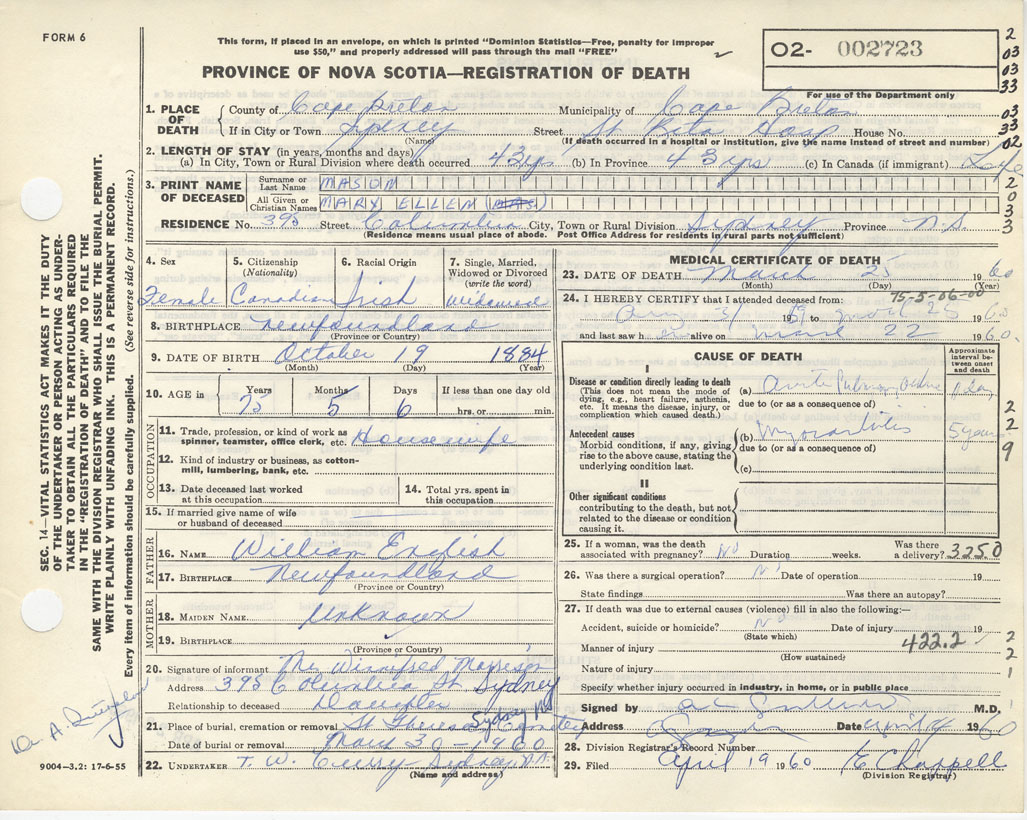 FORM 6
This form, if placed in an envelope, on which is printed "Dominion Statistics—Free, penalty for improper
use $50," and properly addressed will pass through the mail "FREE"
O2- 002723
For use of the Department only
PROVINCE OF NOVA SCOTIA—REGISTRATION OF DEATH
2
03
03
33
03
33
02
2
0
3
3
1. PLACE OF DEATH
County of Cape Breton Municipality of Cape Breton
If in City or Town Sydney Street St Rita Hosp House No.
(Name) (If death occurred in a hospital or institution, give the name instead of street and number)
2. LENGTH OF STAY (in years, months and days)
(a) In City, Town or Rural Division where death occurred 43 yrs (b) In Province 43 yrs (c) In Canada (if immigrant) Life
3. PRINT NAME OF DECEASED
Surname or Last Name MASON
All Given or Christian Names MARY ELLEN (MRS)
RESIDENCE No. 395 Street Columbia City, Town or Rural Division Sydney Province N.S.
(Residence means usual place of abode. Post Office Address for residents in rural parts not sufficient)
4. Sex
Female
5. Citizenship
(Nationality)
Canadian
6. Racial Origin
Irish
7. Single, Married,
Widowed or Divorced
(write the word)
Widowed
8. BIRTHPLACE Newfoundland
(Province or Country)
9. DATE OF BIRTH October 19 1884
(Month) (Day) (Year)
10. AGE in
Years
75
Months
5
Days
6
If less than one day old
hrs. or min.
OCCUPATION
11. Trade, profession, or kind of work as
spinner, teamster, office clerk, etc. Housewife
12. Kind of industry or business, as cotton-
mill, lumbering, bank, etc.
13. Date deceased last worked
at this occupation
14. Total yrs. spent in
this occupation
15. If married give name of wife
or husband of deceased
FATHER
16. NAME William English
17. BIRTHPLACE Newfoundland
(Province or Country)
MOTHER
18. MAIDEN NAME Unknown
19. BIRTHPLACE
(Province or Country)
20. Signature of informant Winnifred
Address 395 Columbia St Sydney
Relationship to deceased Daughter
21. Place of burial, cremation or removal St Theresa Cemetery Sydney NS
Date of burial or removal March 30 - 1960
22. UNDERTAKER T. W. Curry Sydney N.S.
(Name and address)
MEDICAL CERTIFICATE OF DEATH
23. DATE OF DEATH March 25 1960
(Month) (Day) (Year)
75-5-06-00
24. I HEREBY CERTIFY that I attended deceased from:
31 1959 to 25 1960
and last saw h er alive on March 22 1960.
CAUSE OF DEATH
Approximate
interval be-
tween onset
and death
I
Disease or condition directly leading to death
(This does not mean the mode of
dying, e.g., heart failure, asthenia,
etc. It means the disease, injury, or
complication which caused death.)
(a) Acute Pulmon. Oedema 1 day
due to (or as a consequence of)
Antecedent causes
Morbid conditions, if any, giving
rise to the above cause, stating the
underlying condition last.
(b) Myocarditis 5 years
due to (or as a consequence of)
(c)
II
Other significant conditions
contributing to the death, but not
related to the disease or condition
causing it.
2
2
9
25. If a woman, was the death
associated with pregnancy? No Duration weeks. Was there a delivery? 3250
26. Was there a surgical operation? No Date of operation 19
State findings Was there an autopsy?
27. If death was due to external causes (violence) fill in also the following:—
Accident, suicide or homicide? No Date of injury 19
(State which)
422.2
Manner of injury
(How sustained)
Nature of injury
2
2
1
Specify whether injury occurred in industry, in home, or in public place
Signed by M.D.
Address Date April 14 1960
28. Division Registrar's Record Number
29. Filed April 19 1960 Chappell
(Division Registrar)
SEC. 14—VITAL STATISTICS ACT MAKES IT THE DUTY
OF THE UNDERTAKER OR PERSON ACTING AS UNDER-
TAKER TO OBTAIN ALL THE PARTICULARS REQUIRED
IN THE "REGISTRATION OF DEATH" AND TO FILE THE
SAME WITH THE DIVISION REGISTRAR WHO SHALL ISSUE THE BURIAL PERMIT.
WRITE PLAINLY WITH UNFADING INK. THIS IS A PERMANENT RECORD.
Every item of information should be carefully supplied. (See reverse side for instructions.)
Dr A.
9004-3.2: 17-6-55